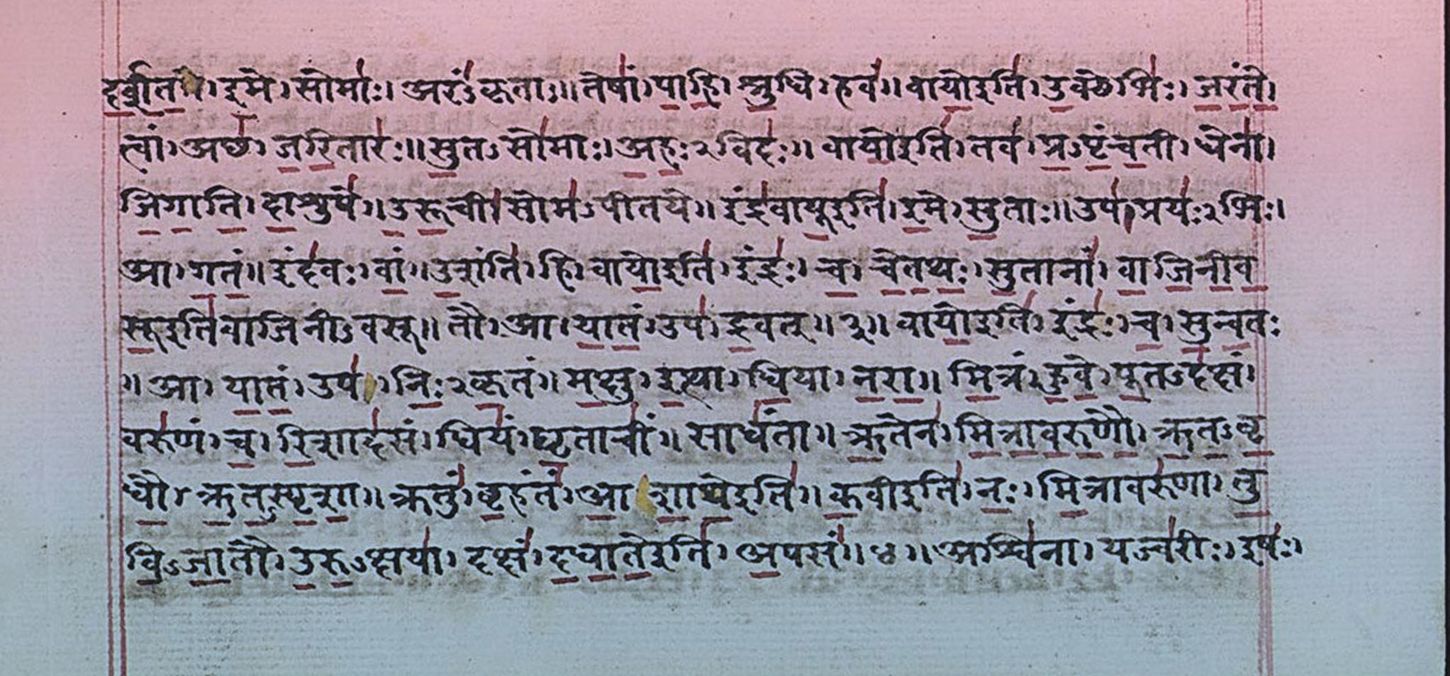 दर्शत। इमे। सोमाः। अरंऽकृताः॥ तेषां। पाहि। श्रुधि। हवं॥ वायोइति। उक्थेभिः। जरंते।
त्वां। अछ। जरितारः॥ सुतऽसोमाः। अहःऽविदः॥ वायोइति। तव। प्रऽपृंचती। धेना।
जिगाति। दाशुषे॥ उरूची। सोमऽपीतये॥ इंद्रवायूइति। इमे। सुताः॥ उप। प्रयःऽभिः।
आ। गतं॥ इंदवः। वां॥ उशंति। हि। वायोइति। इंद्रः। च। चेतथः। सुतानां। वाजिनीव
सूइतिवाजिनीऽवसू॥ तौ। आ। यातं। उप। द्रवत्॥ ३॥ वायोइति। इंद्रः। च। सुन्वतः
॥ आ। यातं। उप। निःऽकृतं॥ मक्षु। इत्था। धिया। नरा॥ मित्रं। हुवे। पूतऽदक्षं।
वरुणं। च। रिशादसं। धियं। घृताचीं। साधंता॥ ऋतेन। मित्रावरुणौ। ऋतऽवृ
धौ। ऋतऽस्पृशा॥ क्रतुं। बृहंतं। आशाथेइति॥ कवीइति। नः। मित्रावरुणा। तु
विऽजातौ। उरुऽक्षया। दक्षं। दधातेइति। अपसं॥ ४॥ अश्विना। यज्वरीः। इषः।